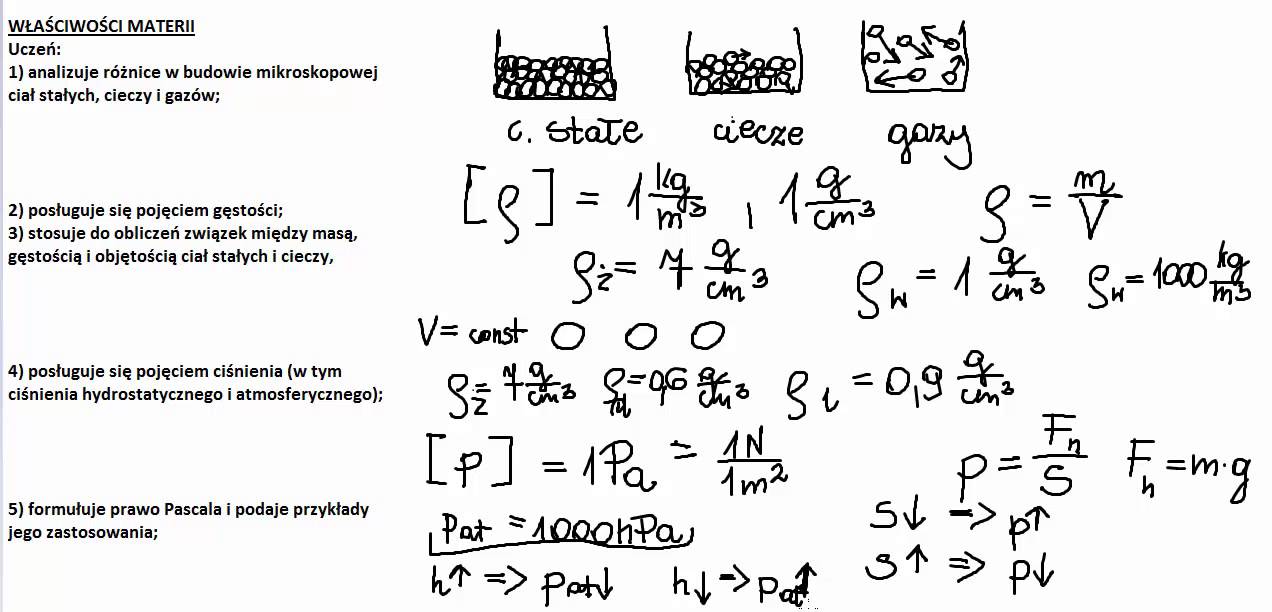 WŁAŚCIWOŚCI MATERII
Uczeń:
1) analizuje różnice w budowie mikroskopowej
ciał stałych, cieczy i gazów;
c. stałe ciecze gazy
2) posługuje się pojęciem gęstości;
3) stosuje do obliczeń związek między masą,
gęstością i objętością ciał stałych i cieczy,
[ρ] = 1 kg/m³ , 1 g/cm³ ρ = m/V
ρż = 7 g/cm³ ρw = 1 g/cm³ ρw = 1000 kg/m³
V = const
4) posługuje się pojęciem ciśnienia (w tym
ciśnienia hydrostatycznego i atmosferycznego);
ρż = 7 g/cm³ ρ = 0,6 g/cm³ ρl = 0,9 g/cm³
[p] = 1Pa = 1N/1m² p = Fn/S Fn = m·g
5) formułuje prawo Pascala i podaje przykłady
jego zastosowania;
pat = 1000hPa S↓ => p↑
h↑ => pat↓ h↓ => pat↑ S↑ => p↓